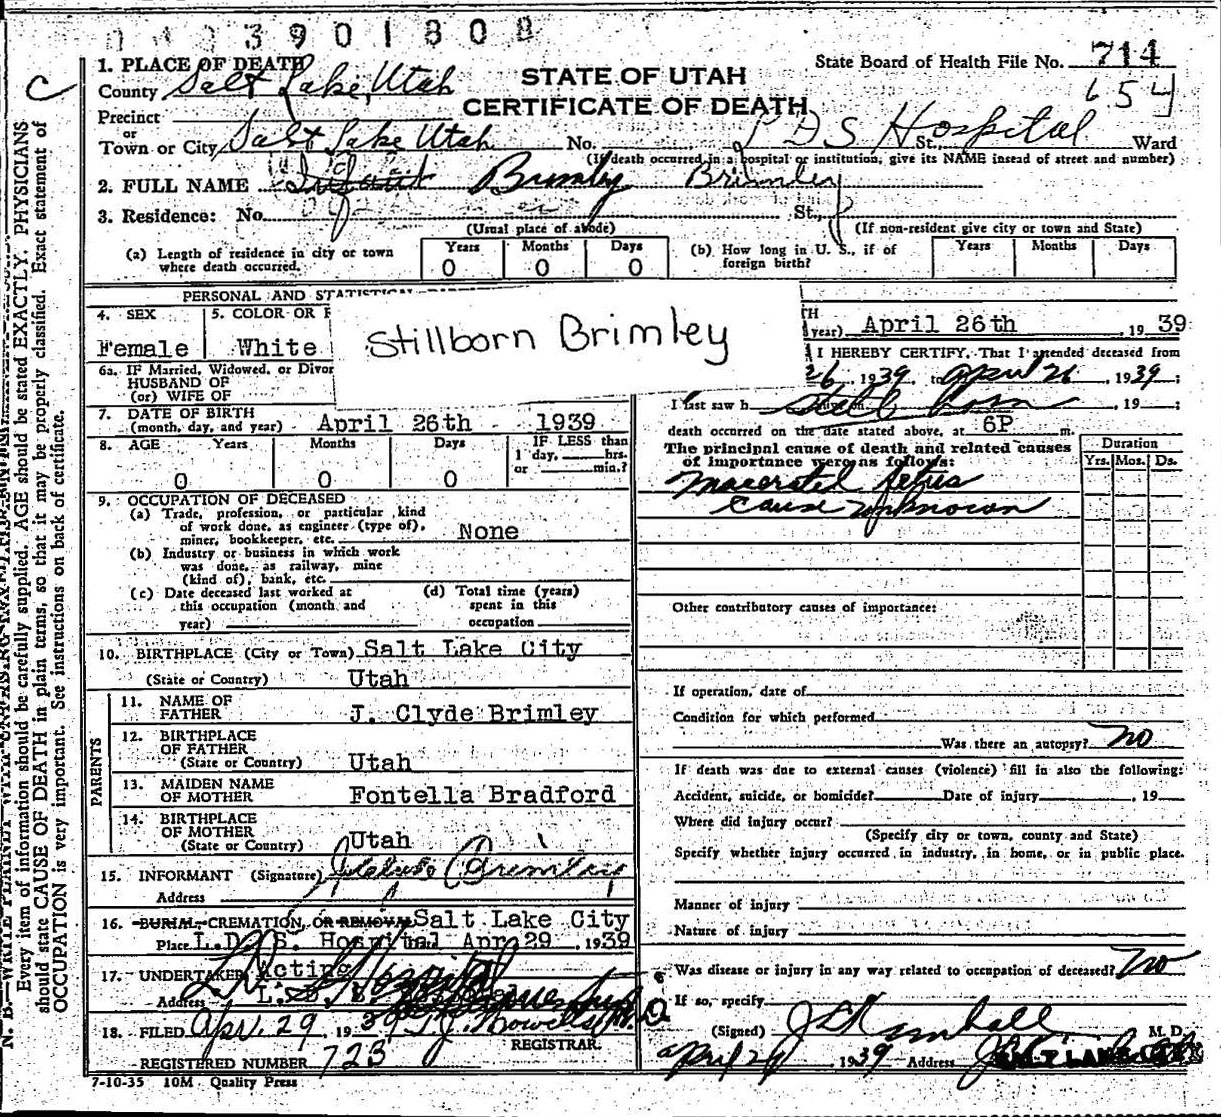 3901808
1. PLACE OF DEATH
County Salt Lake, Utah
STATE OF UTAH
CERTIFICATE OF DEATH
State Board of Health File No. 714
654
C
Precinct
or
Town or City Salt Lake Utah No. L D S Hospital St., Ward
(If death occurred in a hospital or institution, give its NAME insead of street and number)
2. FULL NAME Infant Brimley Brimley
3. Residence: No. St.,
(Usual place of abode)
(If non-resident give city or town and State)
(a) Length of residence in city or town where death occurred.
Years Months Days
0 0 0
(b) How long in U. S., if of foreign birth?
Years Months Days
PERSONAL AND STATISTICAL
4. SEX
Female
5. COLOR OR R
White
Stillborn Brimley
6a. IF Married, Widowed, or Divor
HUSBAND OF
(or) WIFE OF
7. DATE OF BIRTH
(month, day, and year) April 26th 1939
8. AGE Years Months Days IF LESS than
1 day, hrs.
or min.?
0 0 0
9. OCCUPATION OF DECEASED
(a) Trade, profession, or particular kind
of work done, as engineer (type of),
miner, bookkeeper, etc. None
(b) Industry or business in which work
was done, as railway, mine
(kind of), bank, etc.
(c) Date deceased last worked at
this occupation (month and
year)
(d) Total time (years)
spent in this
occupation
10. BIRTHPLACE (City or Town) Salt Lake City
(State or Country) Utah
PARENTS
11. NAME OF
FATHER J. Clyde Brimley
12. BIRTHPLACE
OF FATHER
(State or Country) Utah
13. MAIDEN NAME
OF MOTHER Fontella Bradford
14. BIRTHPLACE
OF MOTHER
(State or Country) Utah
15. INFORMANT (Signature) J Clyde Brimley
Address
16. BURIAL, CREMATION, OR REMOVAL Salt Lake City
Place L.D. S. Hospital Apr 29, 1939
17. UNDERTAKER Acting
Address L. D. S.
18. FILED Apr. 29 1939 T.J. Howells M.D.
REGISTRAR.
REGISTERED NUMBER 723
7-10-35 10M Quality Press
TH
year) April 26th, 19 39
I HEREBY CERTIFY, That I attended deceased from
26, 1939 to april 26, 1939;
I last saw h Still born, 19 ;
death occurred on the date stated above, at 6P m.
The principal cause of death and related causes
of importance were as follows:
Duration
Yrs. Mos. Ds.
Macerated fetus
Cause unknown
Other contributory causes of importance:
If operation, date of
Condition for which performed
Was there an autopsy? no
If death was due to external causes (violence) fill in also the following:
Accident, suicide, or homicide? Date of injury, 19
Where did injury occur?
(Specify city or town, county and State)
Specify whether injury occurred in industry, in home, or in public place.
Manner of injury
Nature of injury
Was disease or injury in any way related to occupation of deceased? No
If so, specify
(Signed) J L Kimball M. D.
april 29 1939 Address SALT LAKE CITY
Every item of information should be carefully supplied. AGE should be stated EXACTLY. PHYSICIANS
should state CAUSE OF DEATH in plain terms, so that it may be properly classified. Exact statement of
OCCUPATION is very important. See instructions on back of certificate.